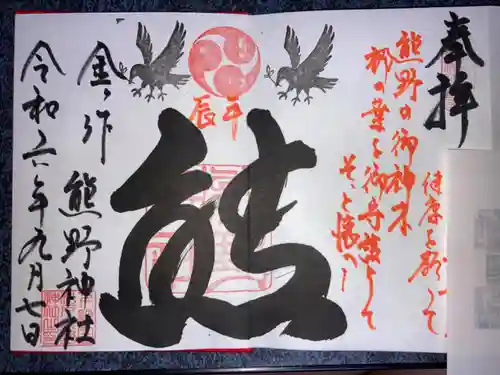 奉拝
熊野の御神木
梛の葉を御守護として
そっと懐へ
健康を願って
辰年
熊
金ヶ作 熊野神社
令和六年九月七日